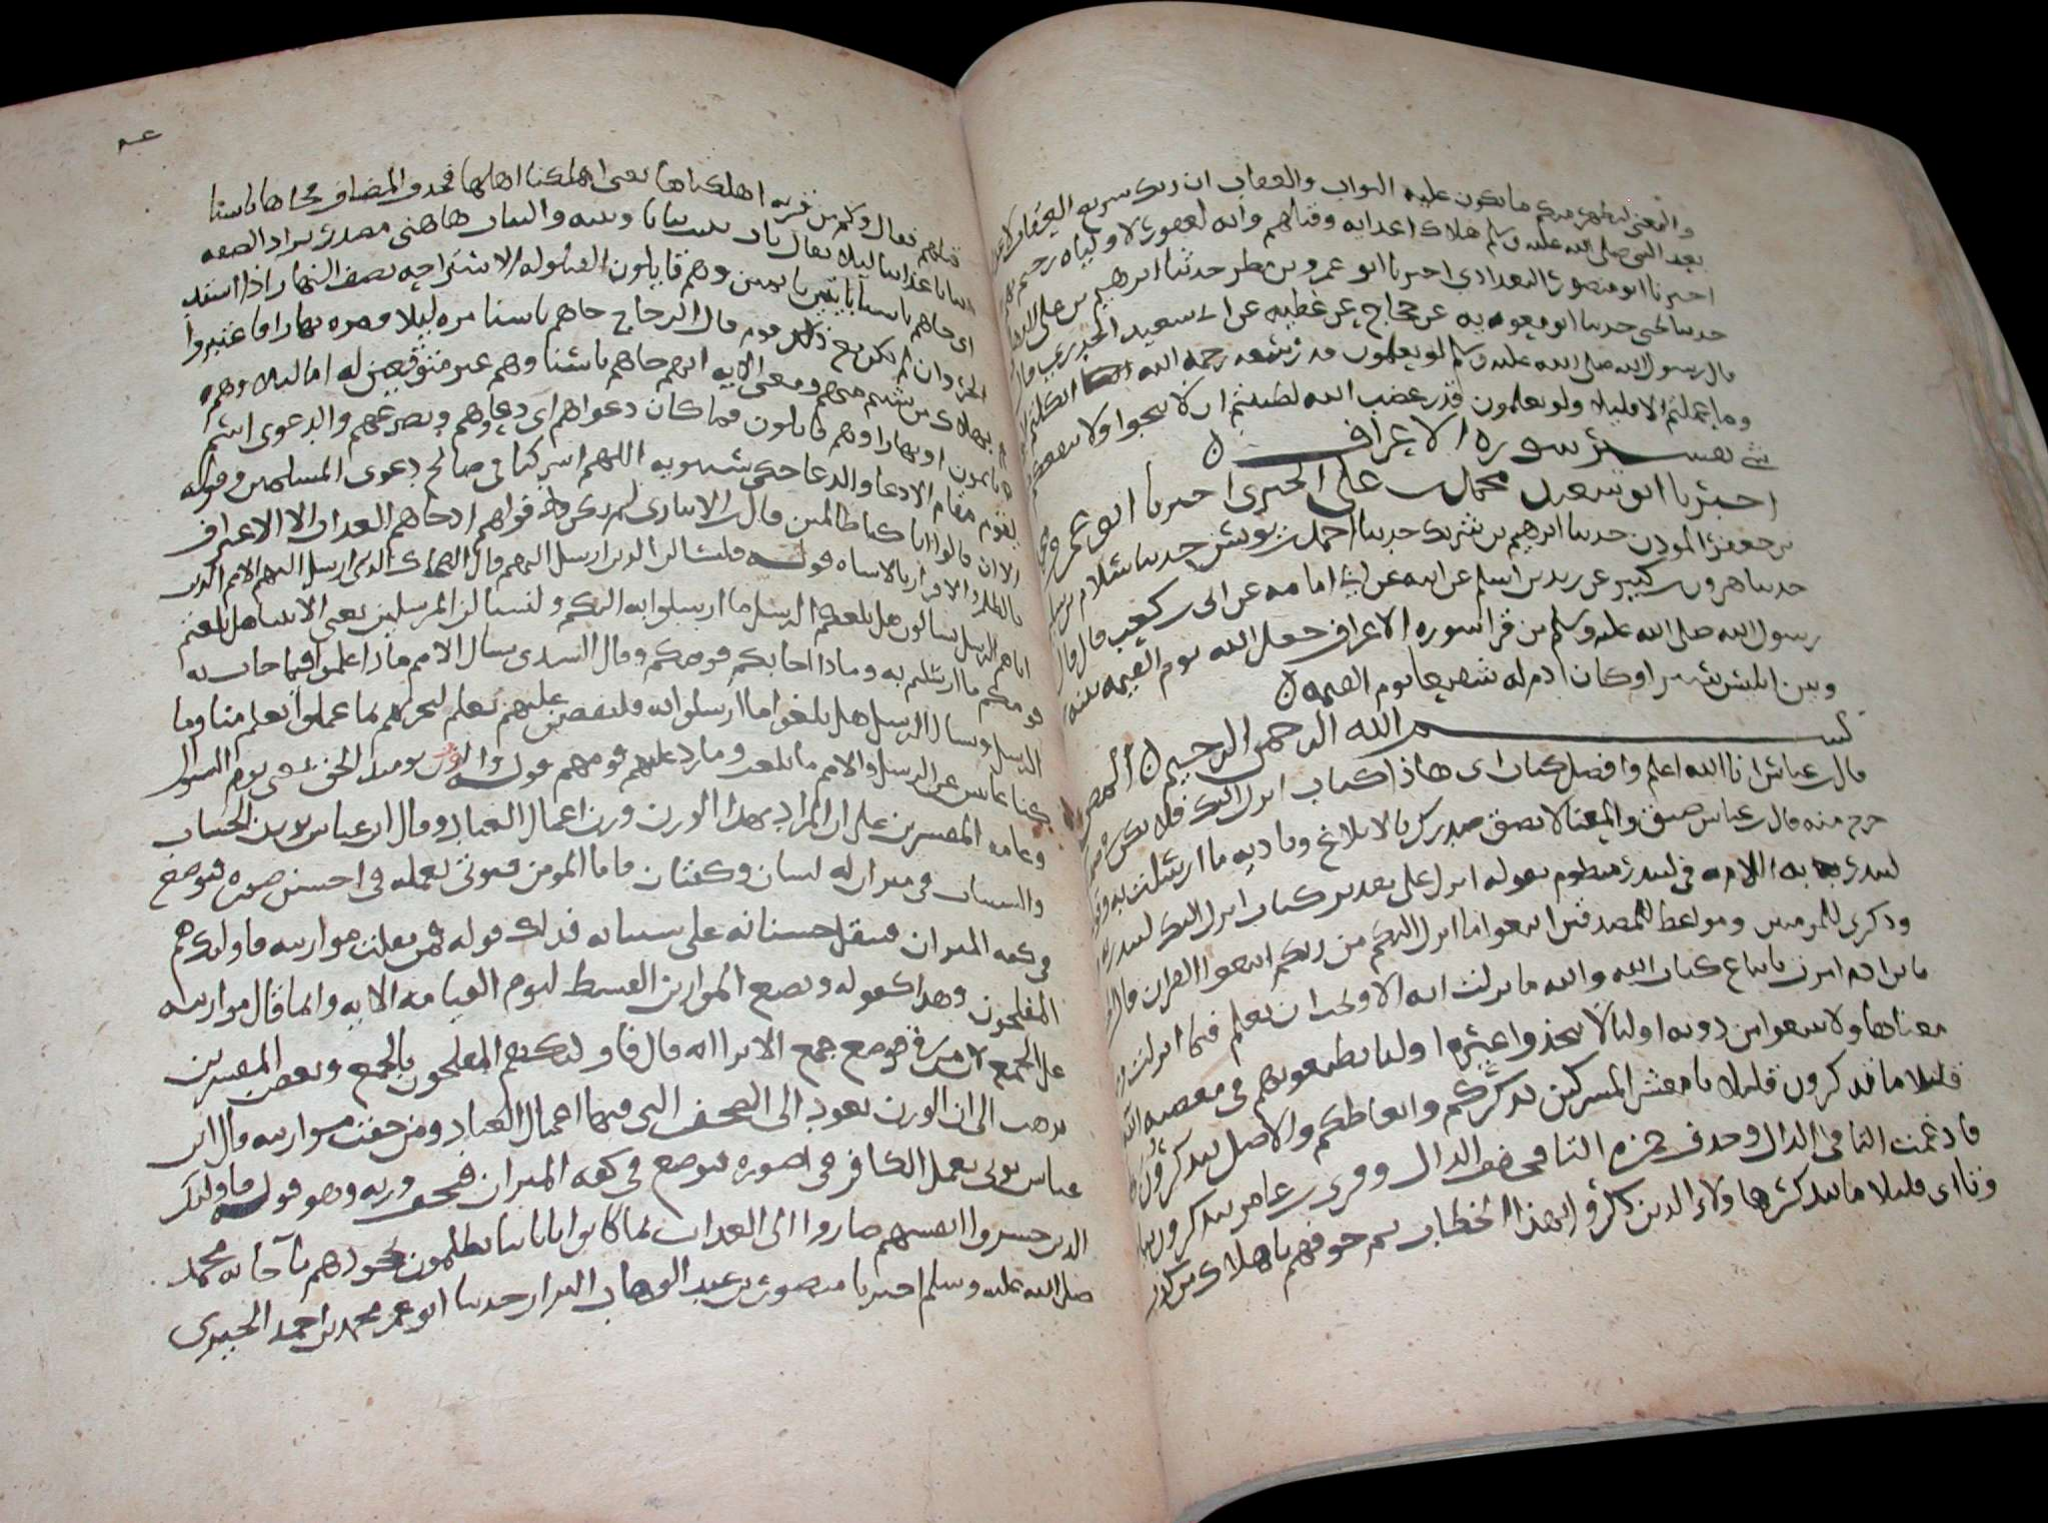 والمعنى ليظهر منكم ما يكون عليه الثواب والعقاب ان ربك سريع العقاب لاعدا
يعد النبي صلى الله عليه وسلم هلاك اعدايه وقتالهم وانه لغفور لاوليايه رحيم بهم
اخبرنا ابو منصور البغدادي اخبرنا ابو عمرو بن مطر حدثنا ابرهيم بن على
حدثنا يحيى حدثنا ابو معويه عن حجاج عن عطيه عن ابي سعيد الخدري قال
قال رسول الله صلى الله عليه وسلم لو يعلمون قدر رحمه الله اتكلتم
وما عملتم الا قليلا ولو يعلمون قدر غضب الله لظننتم ان لا تنجوا ولا ينفعكم
شي تفسير سوره الاعراف
اخبرنا ابو سعيد محمد بن على الحيرى اخبرنا ابو عمرو محمد
بن جعفر المودن حدثنا ابرهيم بن شريك حدثنا احمد بن يونس حدثنا سلام بن
حدثنا هرون بن كثير عن زيد بن اسلم عن ابيه عن ابي امامه عن ابي بن كعب قال قال
رسول الله صلى الله عليه وسلم من قرا سوره الاعراف جعل الله يوم القيمه بينه
وبين ابليس سترا وكان ادم له شفيعا يوم القيمه
بسم الله الرحمن الرحيم المص
قال بن عباس انا الله اعلم وافصل كتاب اى هاذا كتاب انزل اليك فلا يكن في صدرك
حرج منه قال بن عباس ضيق والمعنا لا يضق صدرك بالابلاغ وتاديه ما ارسلت به وقوله
لتنذر به اللام في لتنذر منظوم بقوله انزل على تقدير كتاب انزل اليك لتنذر به
وذكرى للمومنين ومواعظ للمصدقين اتبعوا ما انزل اليكم من ربكم اتبعوا القران قال
يابن ادم امرت باتباع كتاب الله والله ما نزلت ايه الا وتحب ان تعلم فيما انزلت وما
معناها ولا تتبعوا من دونه اوليا لا تتخذوا غيره اوليا تطيعونهم في معصيه الله
قليلا ما تذكرون قليلا يا معشر المشركين تذكركم واتعاظكم والاصل تتذكرون
فادغمت التا في الذال وحذف حمزه التا فخفف الذال وقرى بن عامر يتذكرون بيا
وتا اى قليلا ما يتذكر هاولاء الذين ذكروا بهذا الخطاب ثم خوفهم باهلاك من كذب
قبلهم فقال وكم من قريه اهلكناها يعنى اهلكنا اهلها فحذف المضاف فجاها باسنا
بياتا عذابنا ليلا يقال بات يبيت بياتا وبيته والبيات هاهنى مصدر يراد الصفه
اى جاهم باسنا بايتين نايمين وهم قايلون القيلوله الاستراحه نصف النهار اذا اشتد
الحر وان لم يكن مع ذلك نوم قال الزجاج جاهم باسنا مره ليلا ومره نهارا فاعتبروا
بهلاك من شيتم منهم ومعنى الايه انهم جاهم باسنا وهم غير متوقعين له اما ليلا وهم
نايمون او نهارا وهم قايلون فما كان دعواهم اى دعاوهم وتضرعهم والدعوى اسم
يقوم مقام الادعا والدعا حكى سيبويه اللهم اشركنا في صالح دعوى المسلمين وقوله
الا ان قالوا انا كنا ظالمين قال بن الانبارى لم يكن قولهم اذ جاهم العذاب الا الاعتراف
بالظلم والاقرار بالاساه قوله فلنسالن الذين ارسل اليهم قال الضحاك الذى ارسل اليهم الامم الذين
اتاهم الرسل يسالون هل بلغكم الرسل ما ارسلوا به اليكم ولنسالن المرسلين يعنى الانبيا هل بلغتم
قومكم ما ارسلتم به وماذا اجابكم قومكم وقال السدى يسال الامم ماذا عملوا فيما جات به
الرسل ويسال الرسل هل بلغوا ما ارسلوا به فلنقصن عليهم بعلم لنخبرهم بما عملوا بعلم منا وما
كنا غايبين عن الرسل والامم ما بلغت وما رد عليهم قومهم قوله والوزن يومئذ الحق يعنى يوم السوال
وعامه المفسرين على ان المراد بهذا الوزن وزن اعمال العباد وقال ابن عباس يوزن الحسنات
والسيات في ميزان له لسان وكفتان فاما المومن فيوتى بعمله في احسن صوره فيوضع
في كفه الميزان فيثقل حسناته على سياته فذلك قوله فمن ثقلت موازينه فاوليك هم
المفلحون وهذا كقوله ونضع الموازين القسط ليوم القيامه الايه وانما قال موازينه
على الجمع لان من في موضع جمع الا ترا انه قال فاوليك هم المفلحون بالجمع وبعض المفسرين
يذهب الى ان الوزن يعود الى الصحف التى فيها اعمال العباد ومن خفت موازينه قال ابن
عباس يوتى بعمل الكافر في صوره فيوضع في كفه الميزان فيخف وزنه وهو قوله فاوليك
الذين خسروا انفسهم صاروا الى العذاب بما كانوا باياتنا يظلمون بجحودهم بما جا به محمد
صلى الله عليه وسلم اخبرنا منصور بن عبد الوهاب البزار حدثنا ابو عمرو محمد بن احمد الحيرى